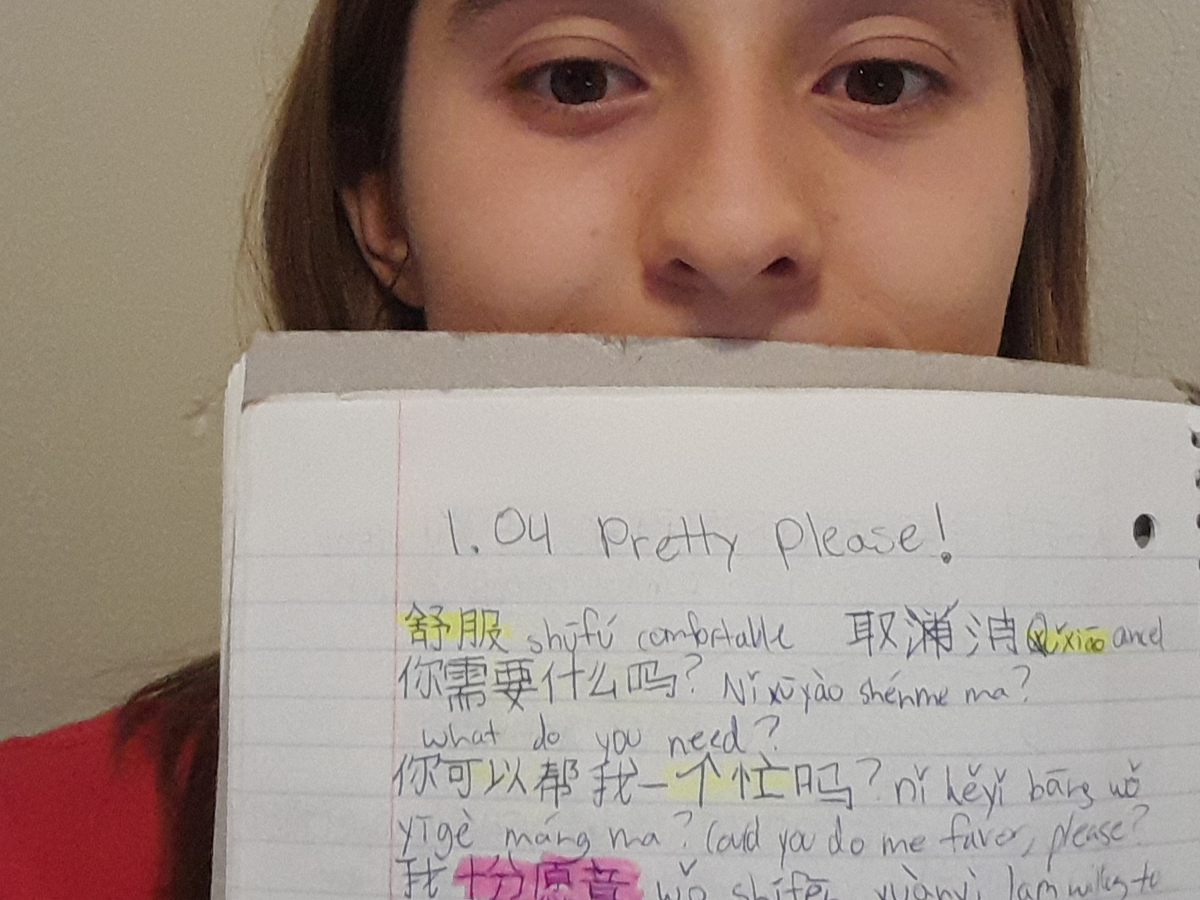 1.04 Pretty Please!
舒服 shūfú comfortable 取消 Qǔxiāo
你需要什么吗? Nǐ xūyào shénme ma?
what do you need?
你可以帮我一个忙吗? nǐ kěyǐ bāng wǒ
yīgè máng ma? Could you do me favor, please?
我十分愿意 wǒ shífēn yuànyì I am willing to